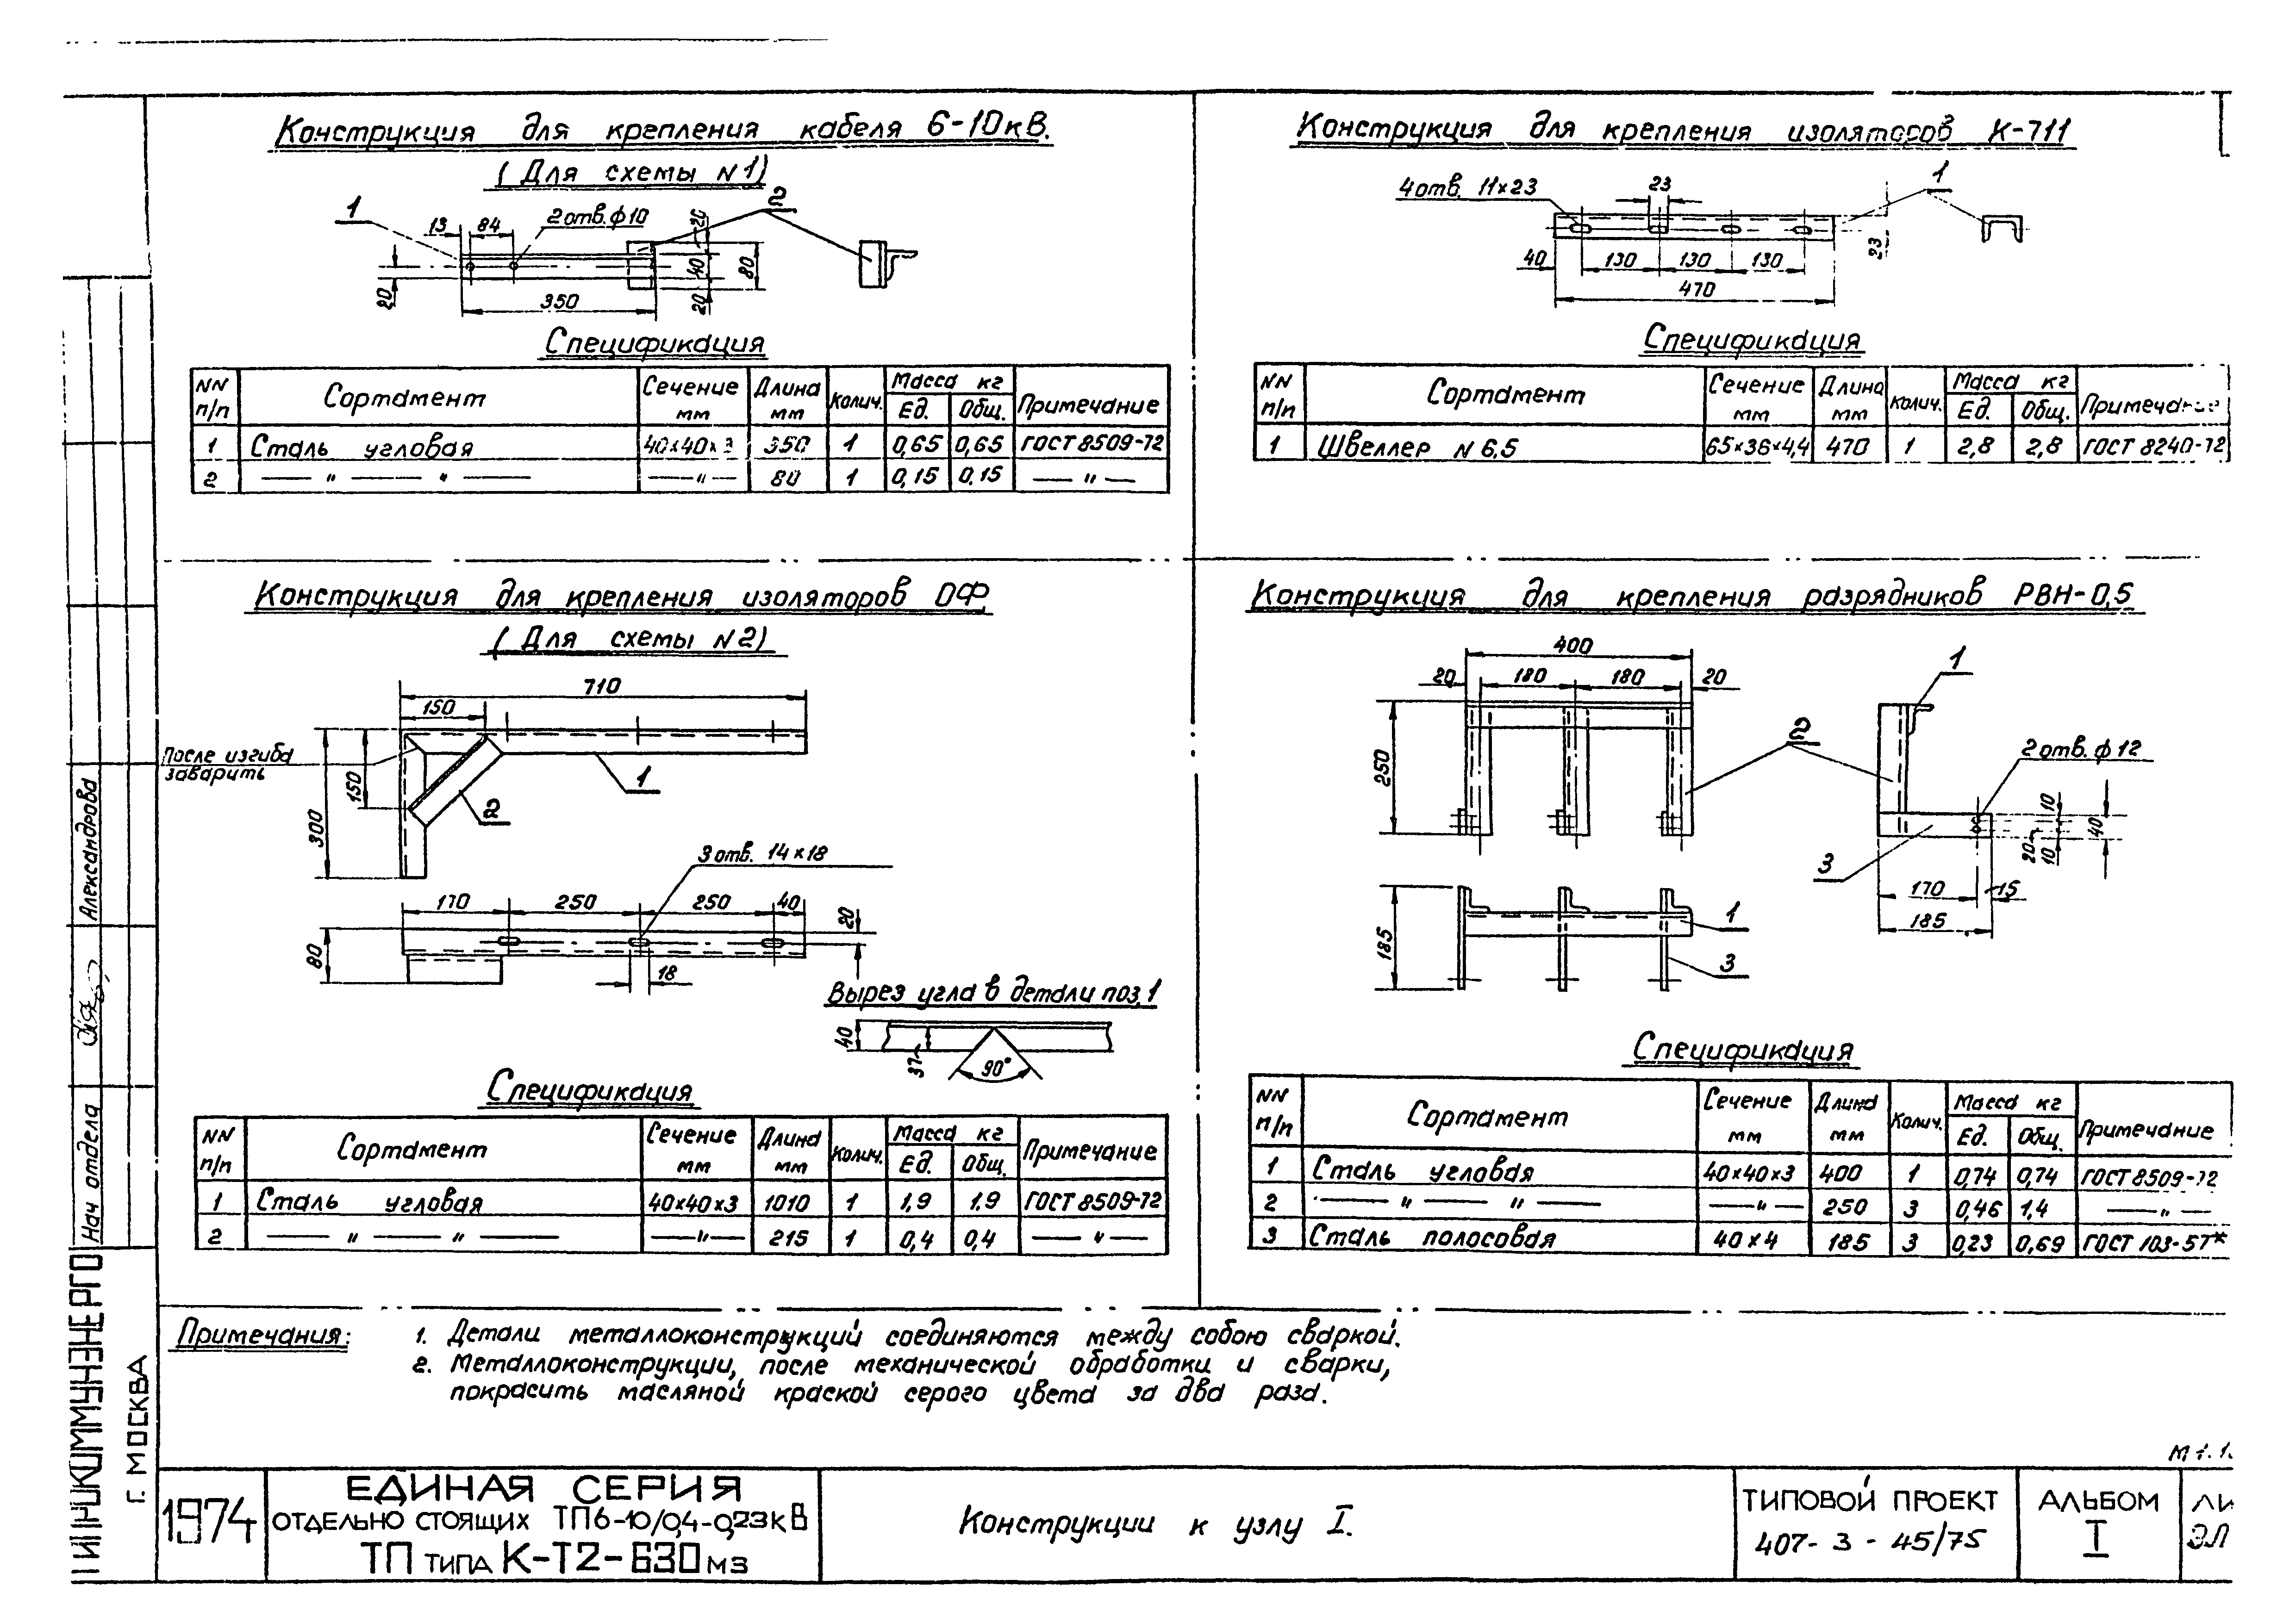 Конструкция для крепления кабеля 6-10кВ.
(Для схемы N1)
1
2
13
84
2 отв. ф10
20
20
40
80
20
350
Спецификация
NN п/п
Сортамент
Сечение мм
Длина мм
Колич.
Масса кг
Ед.
Общ.
Примечание
1 Сталь угловая 40×40×3 350 1 0,65 0,65 ГОСТ 8509-72
2 — " — " — — " — 80 1 0,15 0,15 — " —
Конструкция для крепления изоляторов К-711
4 отв. 11×23
23
1
23
40
130
130
130
470
Спецификация
NN п/п
Сортамент
Сечение мм
Длина мм
Колич.
Масса кг
Ед.
Общ.
Примечание
1 Швеллер N 6,5 65×36×4,4 470 1 2,8 2,8 ГОСТ 8240-72
Конструкция для крепления изоляторов ОФ
(Для схемы N2)
710
150
После изгиба
заварить
150
300
1
2
3 отв. 14×18
170
250
250
40
20
80
18
Вырез угла в детали поз. 1
40
37
90°
Спецификация
NN п/п
Сортамент
Сечение мм
Длина мм
Колич.
Масса кг
Ед.
Общ.
Примечание
1 Сталь угловая 40×40×3 1010 1 1,9 1,9 ГОСТ 8509-72
2 — " — " — — " — 215 1 0,4 0,4 — " —
Конструкция для крепления разрядников РВН-0,5
400
20
180
180
20
1
250
2
2 отв. ф 12
10
40
20
10
3
170
15
185
185
1
3
Спецификация
NN п/п
Сортамент
Сечение мм
Длина мм
Колич.
Масса кг
Ед.
Общ.
Примечание
1 Сталь угловая 40×40×3 400 1 0,74 0,74 ГОСТ 8509-72
2 — " — " — — " — 250 3 0,46 1,4 — " —
3 Сталь полосовая 40×4 185 3 0,23 0,69 ГОСТ 103-57*
Примечания:
1. Детали металлоконструкций соединяются между собою сваркой.
2. Металлоконструкции, после механической обработки и сварки,
покрасить масляной краской серого цвета за два раза.
Нач отдела
Александрова
Г. МОСКВА
М 1:1
1974
ЕДИНАЯ СЕРИЯ
ОТДЕЛЬНО СТОЯЩИХ ТП6-10/0,4-0,23кВ
ТП ТИПА К-Т2-630 М3
Конструкции к узлу I.
ТИПОВОЙ ПРОЕКТ
407-3-45/75
АЛЬБОМ
I
ЛИ
ЭЛ